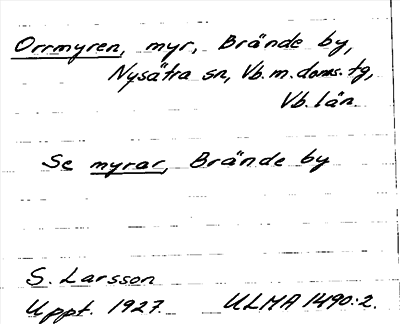 Orrmyren, myr, Brände by,
Nysätra sn, Vb. m. doms. tg,
Vb. län
Se myrar, Brände by
S. Larsson
Uppt. 1927. ULMA 1490:2.